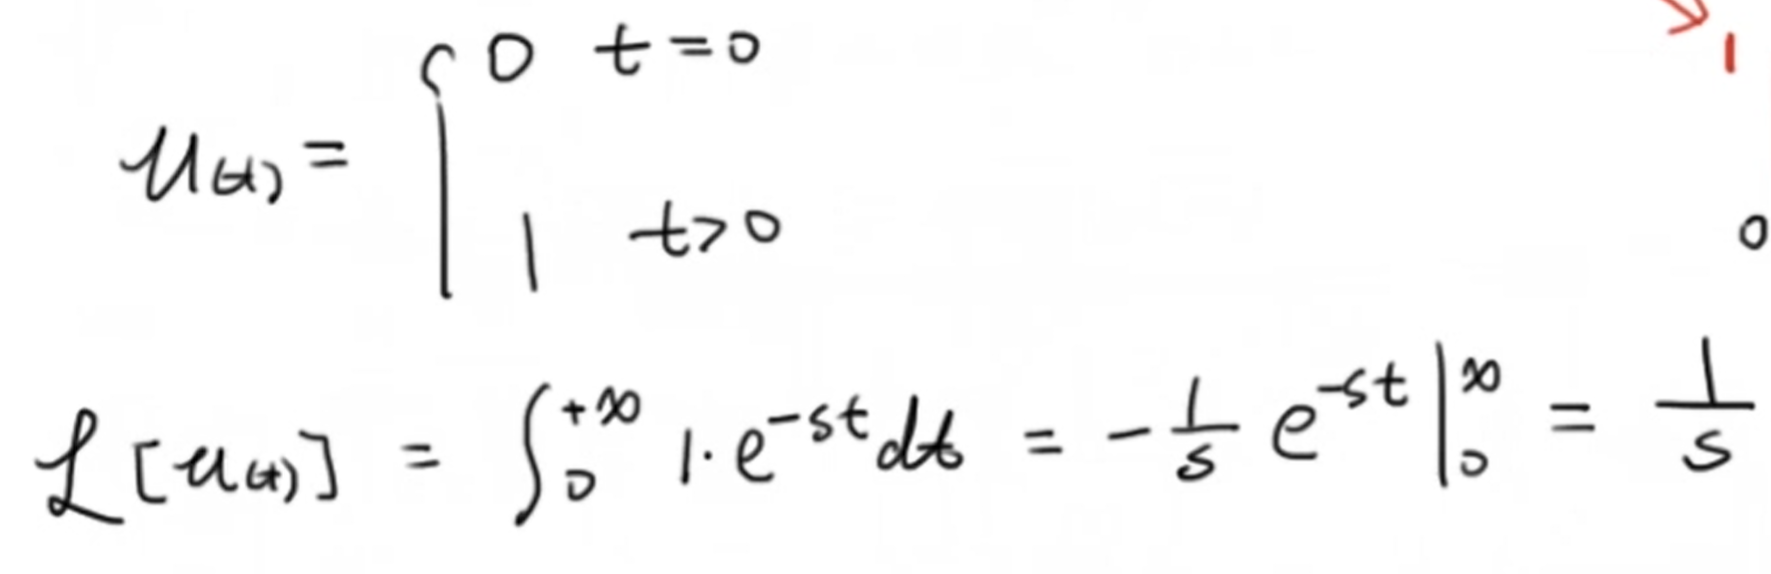 1
u(t) = { 0 t=0
1 t>0
0
ℒ[u(t)] = ∫₀^{+∞} 1·e^{-st}dt = -1/s e^{-st} |₀^∞ = 1/s